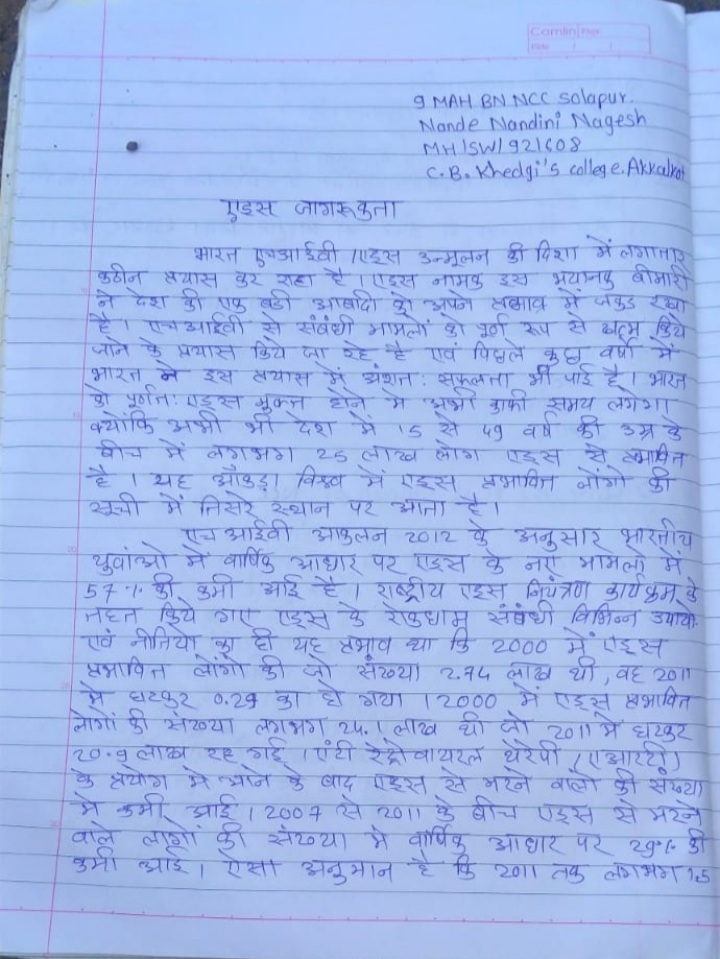 Camlin Page
Date / /
9 MAH BN NCC Solapur.
Nande Nandini Nagesh
MH/SW/921608
C.B. Khedgi's college. Akkalkot
एड्स जागरूकता
भारत एचआईवी /एड्स उन्मूलन की दिशा में लगातार
कठीन प्रयास कर रहा है। एड्स नामक इस भयानक बीमारी
ने देश की एक बडी आबादी को अपने प्रभाव में जकड रखा
है। एचआईवी से संबंधी मामलों को पुर्ण रूप से खत्म किये
जाने के प्रयास किये जा रहे है एवं पिछले कुछ वर्षो मे
भारत ने इस प्रयास में अंशत: सफलता भी पाई है। भारत
को पूर्णत: एड्स मुक्त होने मे अभी काफी समय लगेगा
क्योंकि अभी भी देश में 15 से 49 वर्ष की उम्र के
बीच में लगभग 25 लाख लोग एड्स से प्रभावित
है। यह आँकड़ा विश्व में एड्स प्रभावित लोंगो की
सूची में तिसरे स्थान पर आता है।
एच आईवी आकलन 2012 के अनुसार भारतीय
युवांओ में वार्षिक आधार पर एड्स के नए मामलो में
57% की कमी आई है। राष्ट्रीय एड्स नियंत्रण कार्यक्रम के
तहत किये गए एड्स के रोकधाम संबंधी विभिन्न उपायो
एवं नीतियो का ही यह प्रभाव था कि 2000 में एड्स
प्रभावित लोंगो की जो संख्या 2.74 लाख थी, वह 2011
मे घटकर 0.29 का हो गया। 2000 में एड्स प्रभावित
लोगों की संख्या लगभग 24.1 लाख थी जो 2011 मे घटकर
20.9 लाख रह गई। एंटी रेट्रोवायरल थेरेपी (एआरटी)
के प्रयोग मे आने के बाद एड्स से मरने वालो की संख्या
मे कमी आई। 2007 से 2011 के बीच एड्स से मरने
वाले लोगों की संख्या मे वार्षिक आधार पर 29% की
कमी आई। ऐसा अनुमान है कि 2011 तक लगभग 1.5